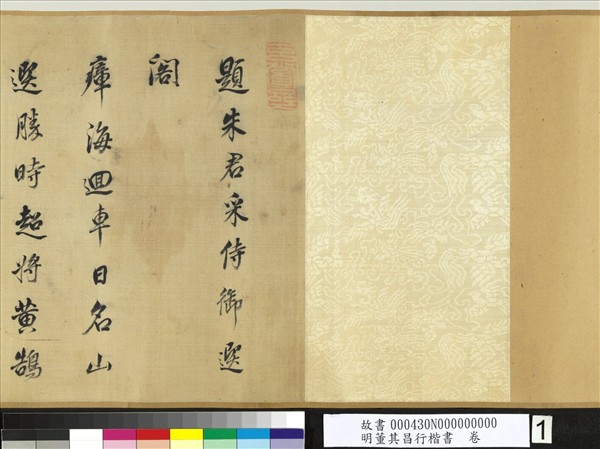 題朱君采侍御選
閣
瘴海迴車日名山
選勝時超將黃鵠
故書 000430N000000000
明董其昌行楷書 卷
1